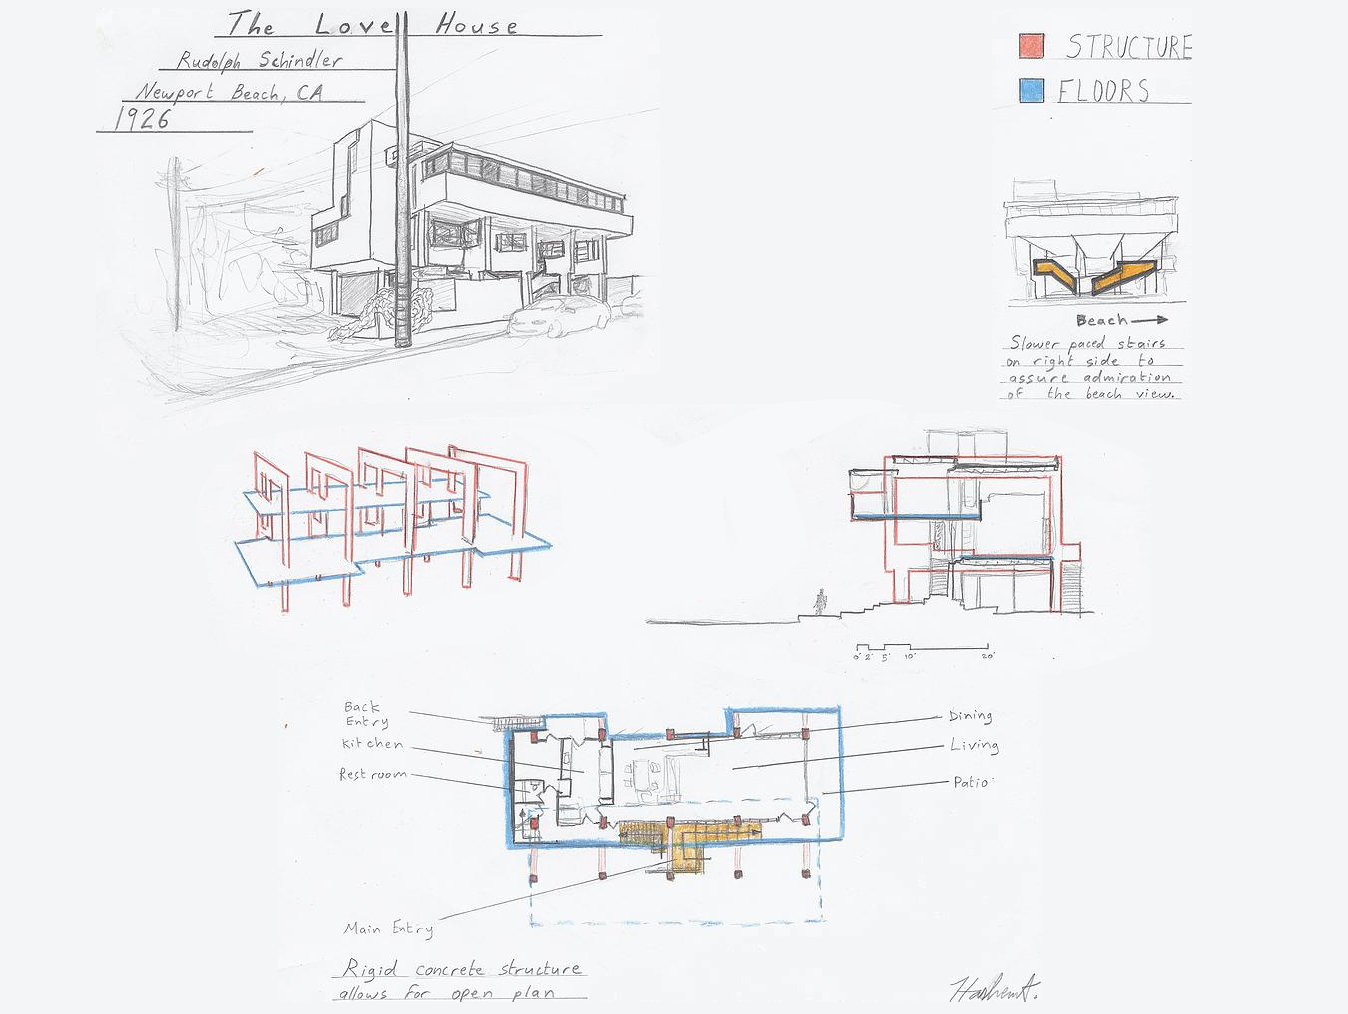 The Lovell House
Rudolph Schindler
Newport Beach, CA
1926
STRUCTURE
FLOORS
Beach
Slower paced stairs
on right side to
assure admiration
of the beach view.
0' 2' 5' 10' 20'
Back
Entry
Kitchen
Restroom
Dining
Living
Patio
Main Entry
Rigid concrete structure
allows for open plan